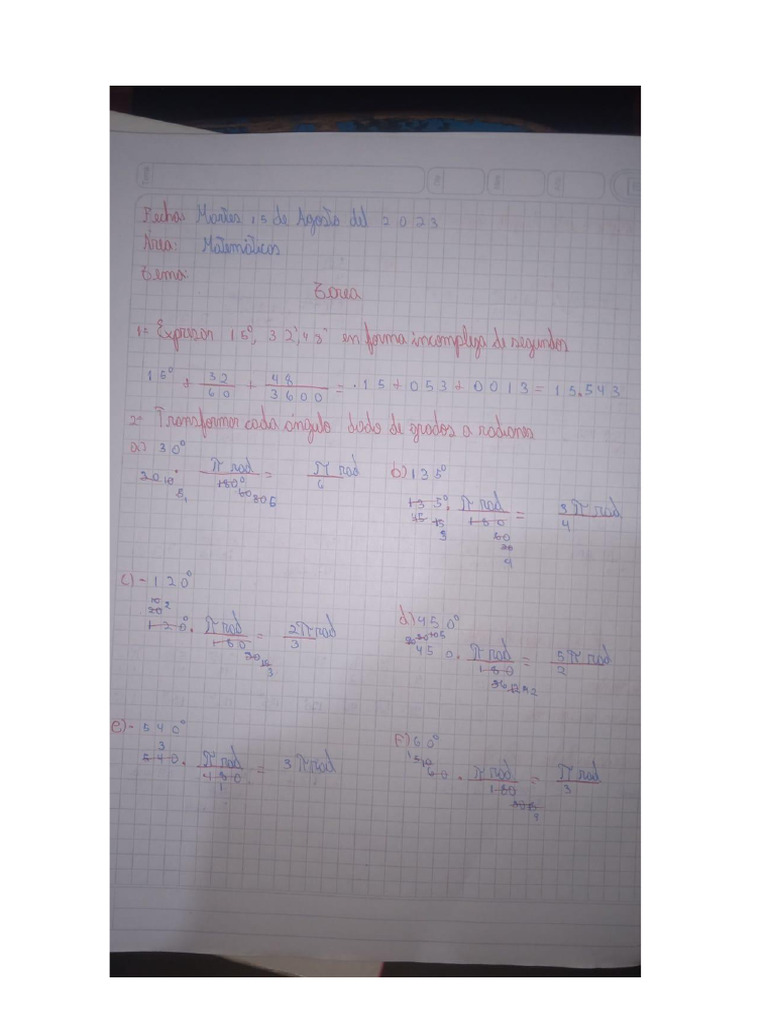 Fecha: Martes 15 de Agosto del 2023
Área: Matemáticas
Tema:
Tarea
1= Expresar 15°, 32', 48" en forma incompleja de segundos
15° + 32/60 + 48/3600 = .15 + 053 + 0013 = 15.543
2= Transformar cada ángulo dado de grados a radianes
a) 30°
π rad / 180° = π rad / 6
b) 135°
135° . π rad / 180 = 3 π rad / 4
c) - 120°
120° . π rad / 180 = 2π rad / 3
d) 450°
450 . π rad / 180 = 5 π rad / 2
e) - 540°
540 . π rad / 180 = 3 π rad
F) 60°
60 . π rad / 180 = π rad / 3